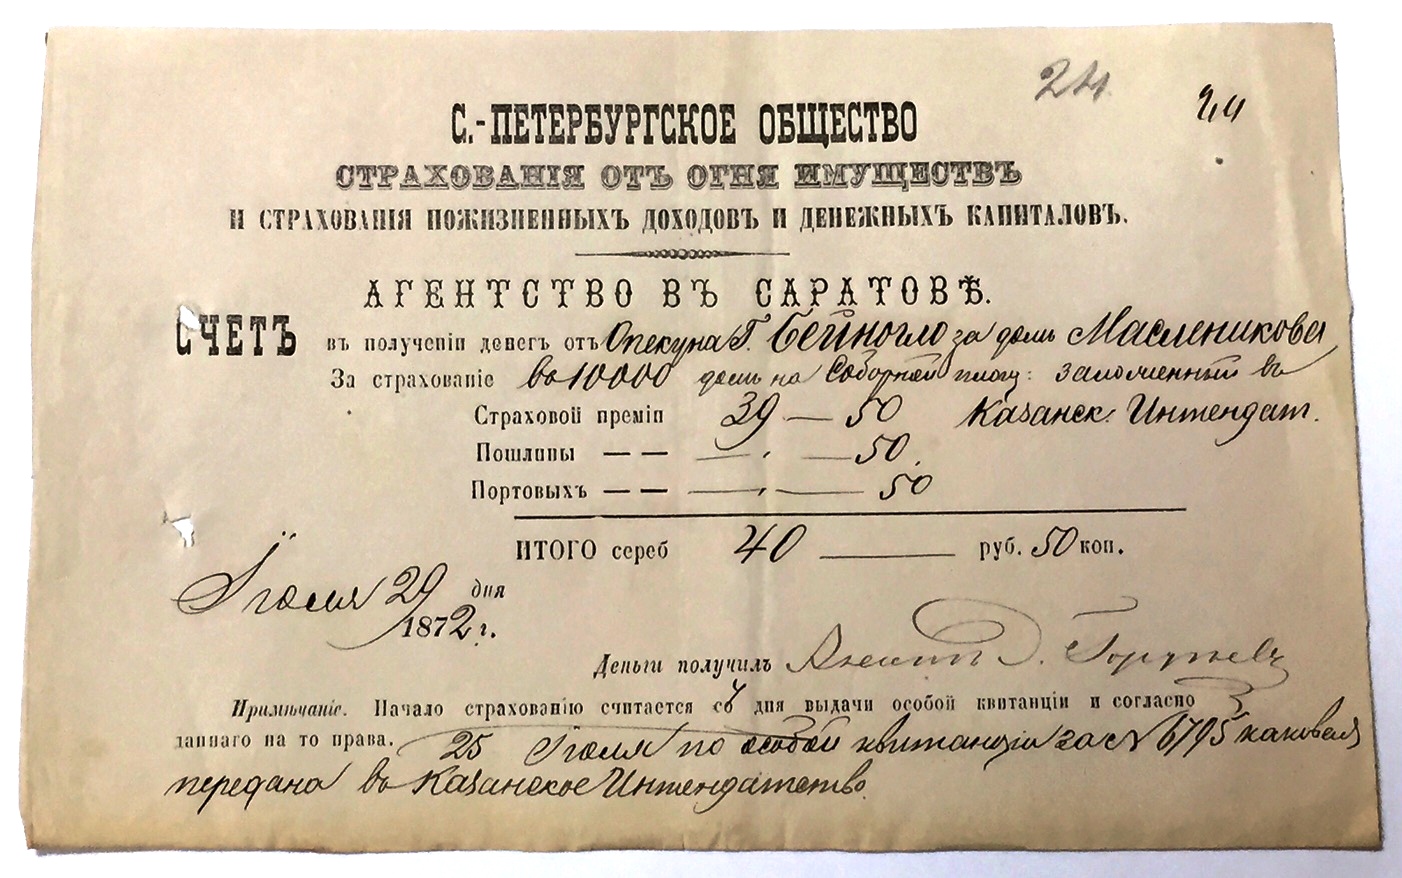 24 24
С.-ПЕТЕРБУРГСКОЕ ОБЩЕСТВО
СТРАХОВАНІЯ ОТЪ ОГНЯ ИМУЩЕСТВЪ
И СТРАХОВАНІЯ ПОЖИЗНЕННЫХЪ ДОХОДОВЪ И ДЕНЕЖНЫХЪ КАПИТАЛОВЪ.
АГЕНТСТВО ВЪ САРАТОВѢ.
СЧЕТЪ въ полученіи денегъ отъ Опекуна Г. Бейногло за домъ Масленикова
За страхованіе въ 10000 домъ на Соборной площ: заложенный въ
Страховой преміи 39 — 50 Казанск: Интендат.
Пошлины — — — , — 50.
Портовыхъ — — — , — 50
ИТОГО сереб 40 — руб. 50 коп.
Іюля 29 дня
1872 г.
Деньги получилъ
Примѣчаніе. Начало страхованію считается съ дня выдачи особой квитанціи и согласно
даннаго на то права. 25 Іюля по особой квитанціи за № 6795 каковая
передана въ Казанское Интендатство.